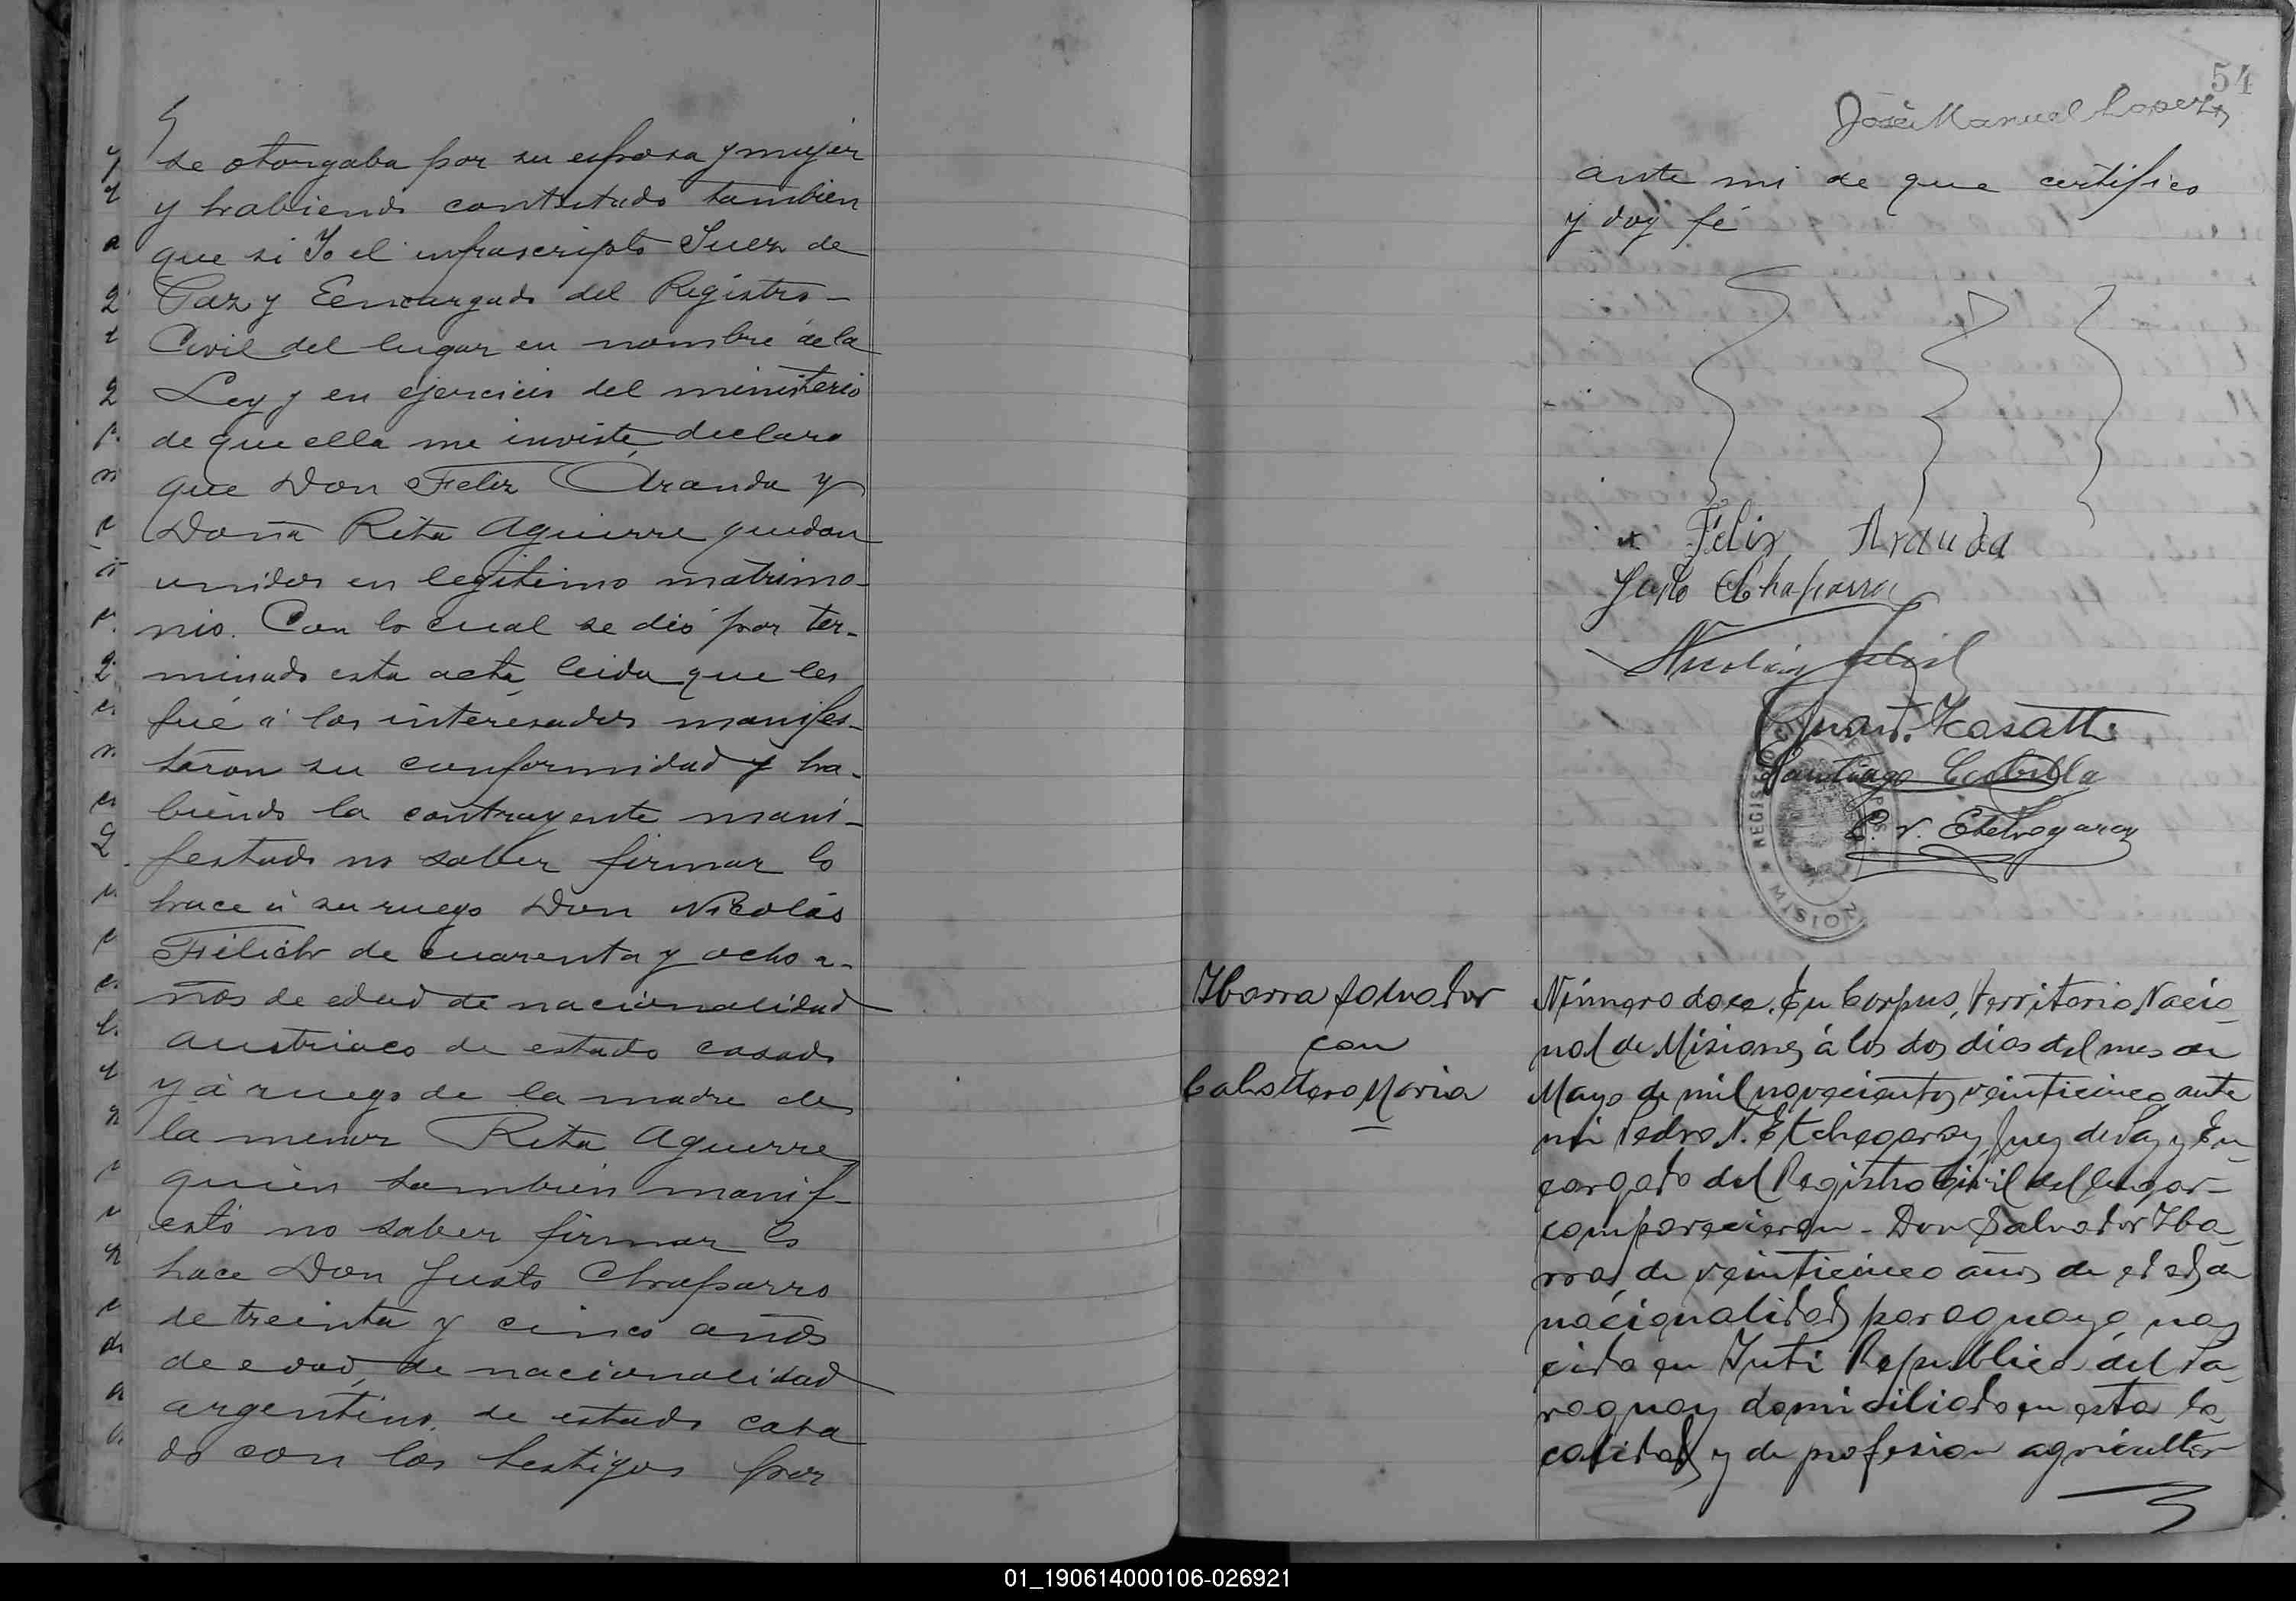 se otorgaba por su esposa y mujer
y habiendo contestado tambien
que si Yo el infrascripto Juez de
Paz y Eencargado del Registro -
Civil del lugar en nombre de la
Ley y en ejercicio del ministerio
de que ella me inviste, declaro
que Don Feliz Aranda y
Doña Rita Aguirre quedan
unidos en legitimo matrimo-
nio. Con lo cual se dió por ter-
minado esta acta, leida que les
fué á los interesados manifes-
taron su conformidad y ha-
biendo la contrayente mani-
festado no saber firmar lo
hace á su ruego Don Nicolás
Filich de cuarenta y ocho a-
ños de edad de nacionalidad
austriaco de estado casado
y á ruego de la madre de
la menor Rita Aguirre
quien tambien manif-
estó no saber firmar lo
hace Don Justo Chaparro
de treinta y cinco años
de edad, de nacionalidad
argentino, de estado casa
do con los testigos por
54
José Manuel Lopez
ante mi de que certifico
y doy fé
Féliz Aranda
Justo Chaparro
Nicolás
Juan Kasatti
Santiago Cubilla
P. N. Etchegaray
REGISTRO CIVIL
MISIONES
Ibarra Salvador
con
Caballero Maria
Número doce. En Corpus, Territorio Nacio-
nal de Misiones á los dos dias del mes de
Mayo de mil novecientos veinticinco ante
mi Pedro N. Etchegaray Juez de Paz y En-
cargado del Registro Civil del lugar -
comparecieron - Don Salvador Iba-
rra, de veinticinco años de edad de
nacionalidad paraguaya na-
cido en Yuti Republica del Pa-
raguay domiciliado en esta lo-
calidad y de profesion agricultor
01_190614000106-026921